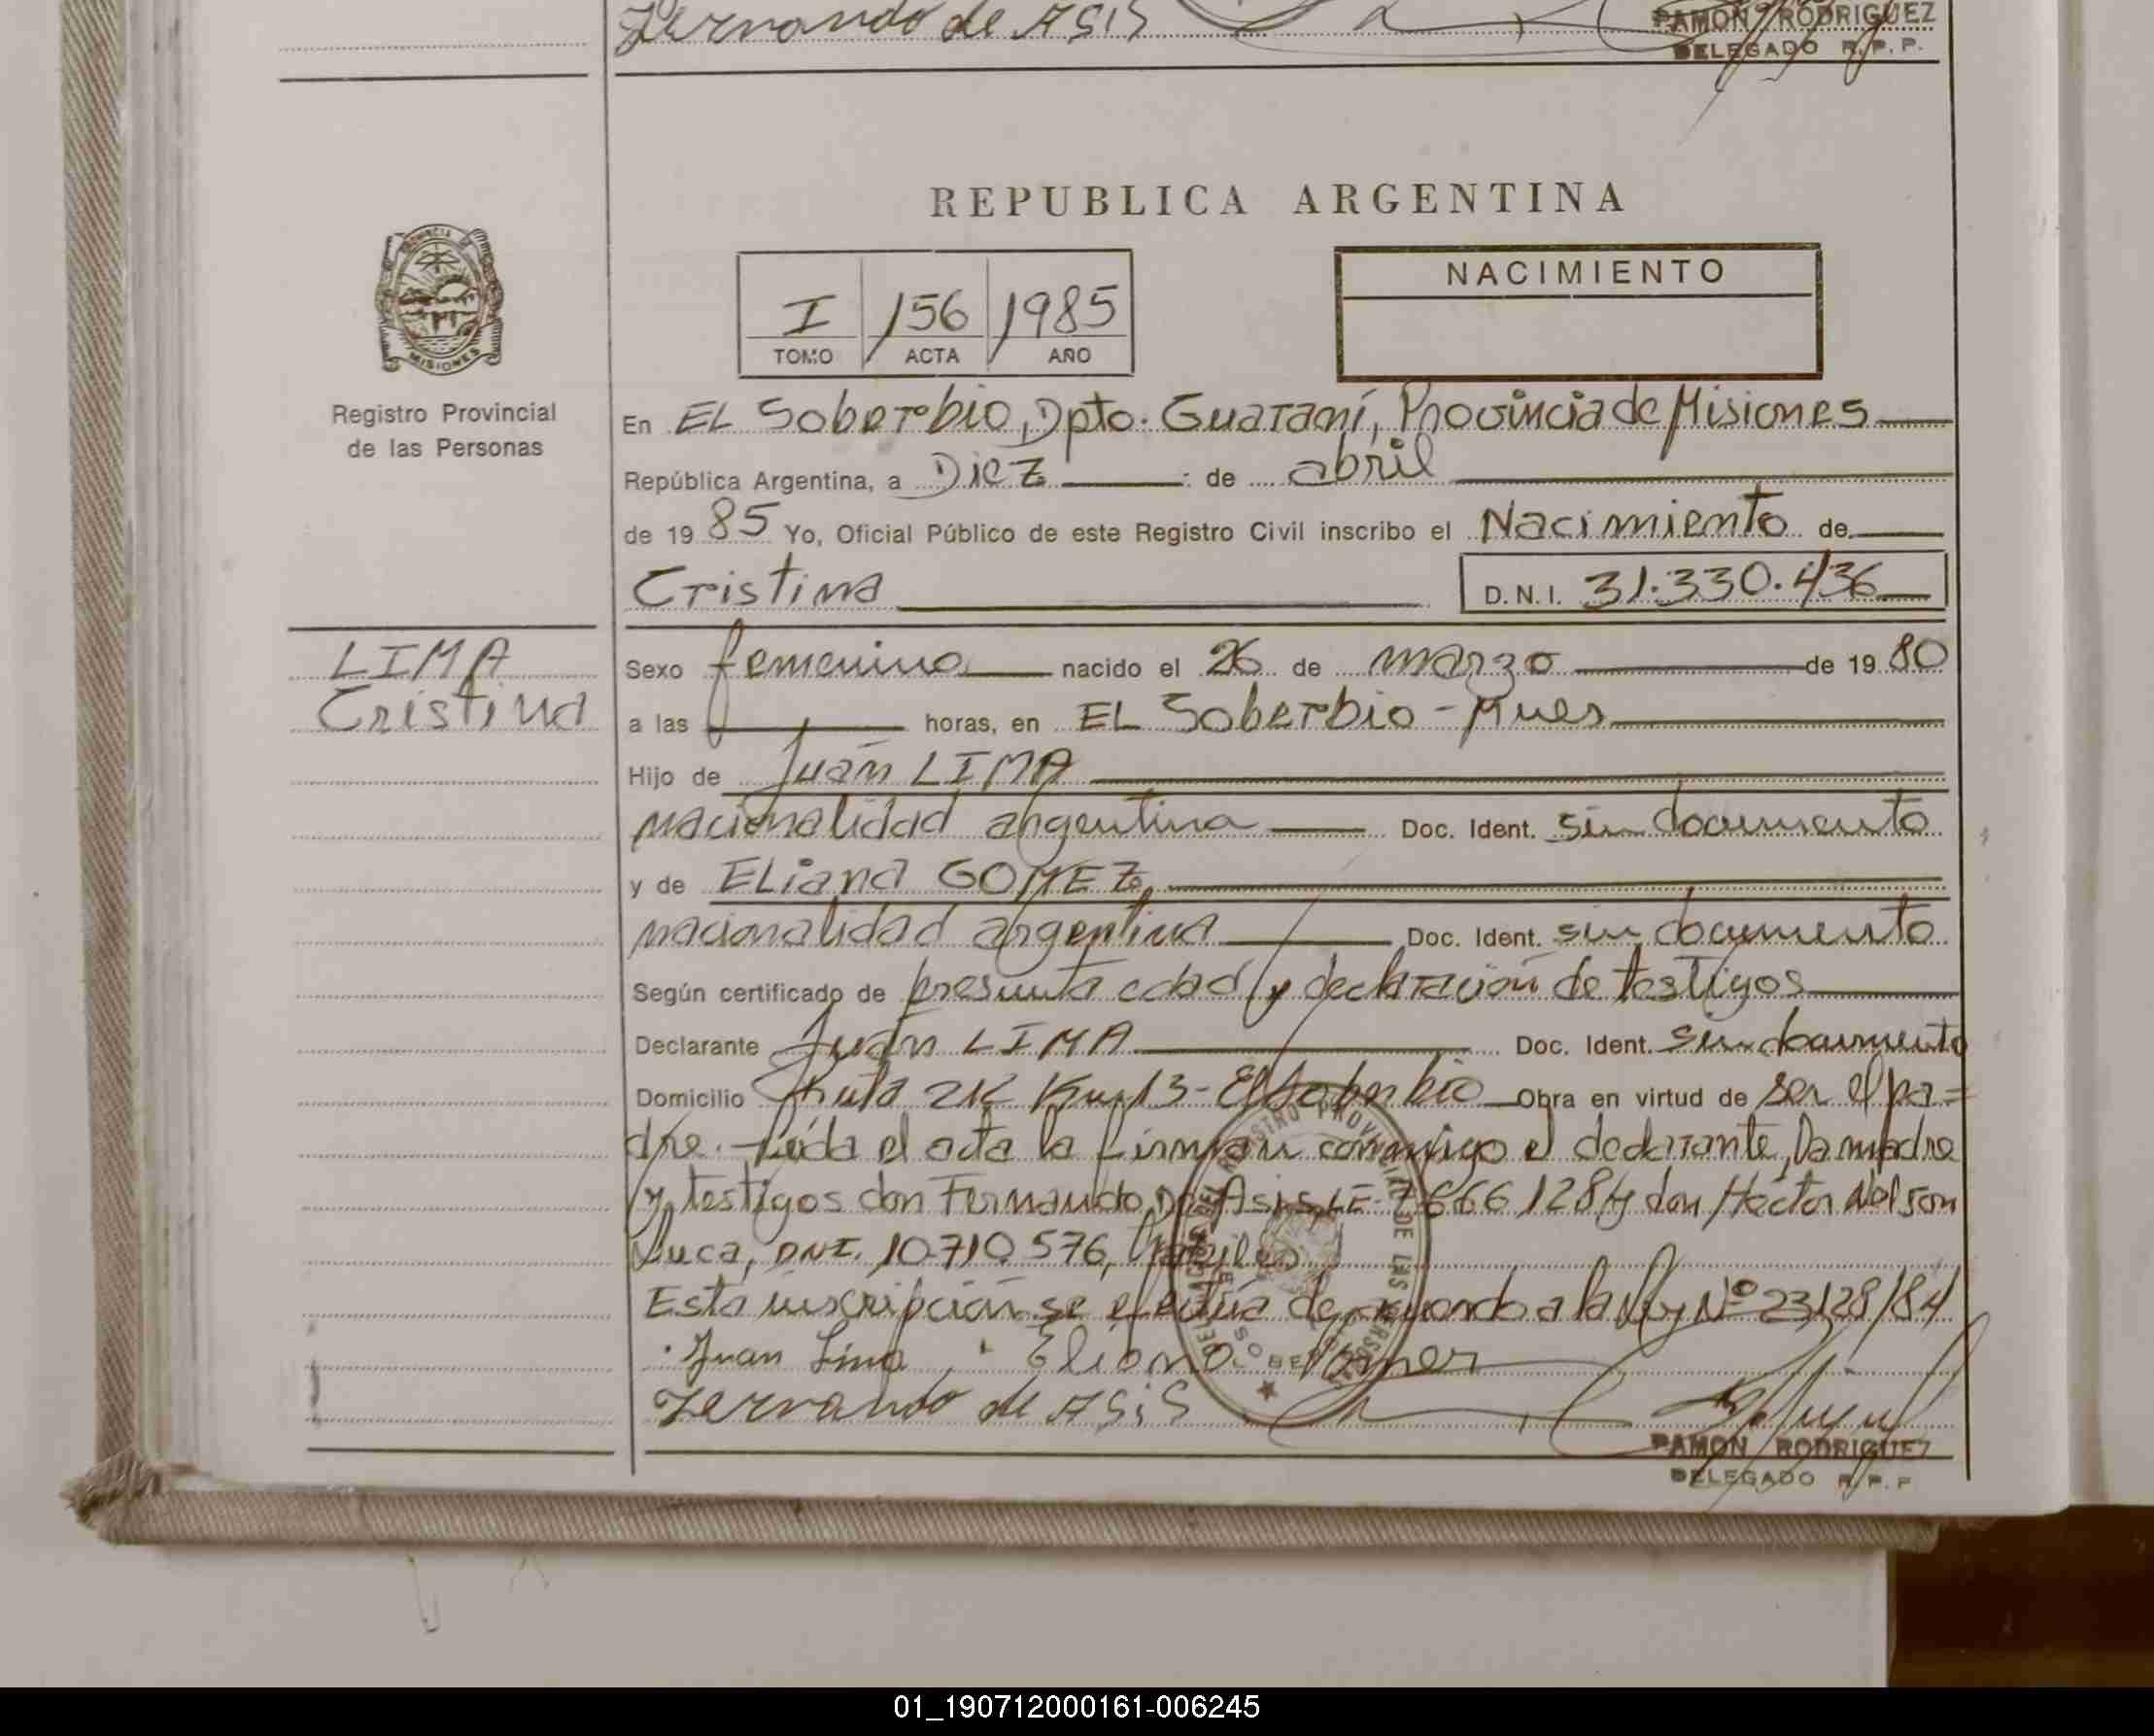 Fernando de ASIS
RAMON RODRIGUEZ
DELEGADO R.P.P.
REPUBLICA ARGENTINA
PROVINCIA DE
MISIONES
Registro Provincial
de las Personas
I 156 1985
TOMO ACTA AÑO
NACIMIENTO
En EL Soberbio, Dpto. Guaraní, Provincia de Misiones
República Argentina, a Diez de abril
de 1985 Yo, Oficial Público de este Registro Civil inscribo el Nacimiento de
Cristina D.N.I. 31.330.436
LIMA
Cristina
Sexo femenino nacido el 26 de marzo de 1980
a las horas, en EL Soberbio - Mnes
Hijo de Juan LIMA
nacionalidad argentina Doc. Ident. sin documento
y de ELiana GOMEZ
nacionalidad argentina Doc. Ident. sin documento
Según certificado de presunta edad y declaración de testigos
Declarante Juan LIMA Doc. Ident. sin documento
Domicilio Ruta 212 Km 13 - El Soberbio Obra en virtud de ser el pa=
dre. Leída el acta la firman conmigo el declarante, la madre
y testigos don Fernando De Asis, LE 7666128 y don Héctor Nelson
Luca, DNI. 10.710.576,
Esta inscripción se efectúa de acuerdo a la Ley Nº 23128/84
Juan Lima Eliana
Fernando de ASiS
RAMON RODRIGUEZ
DELEGADO R.P.P
01_190712000161-006245